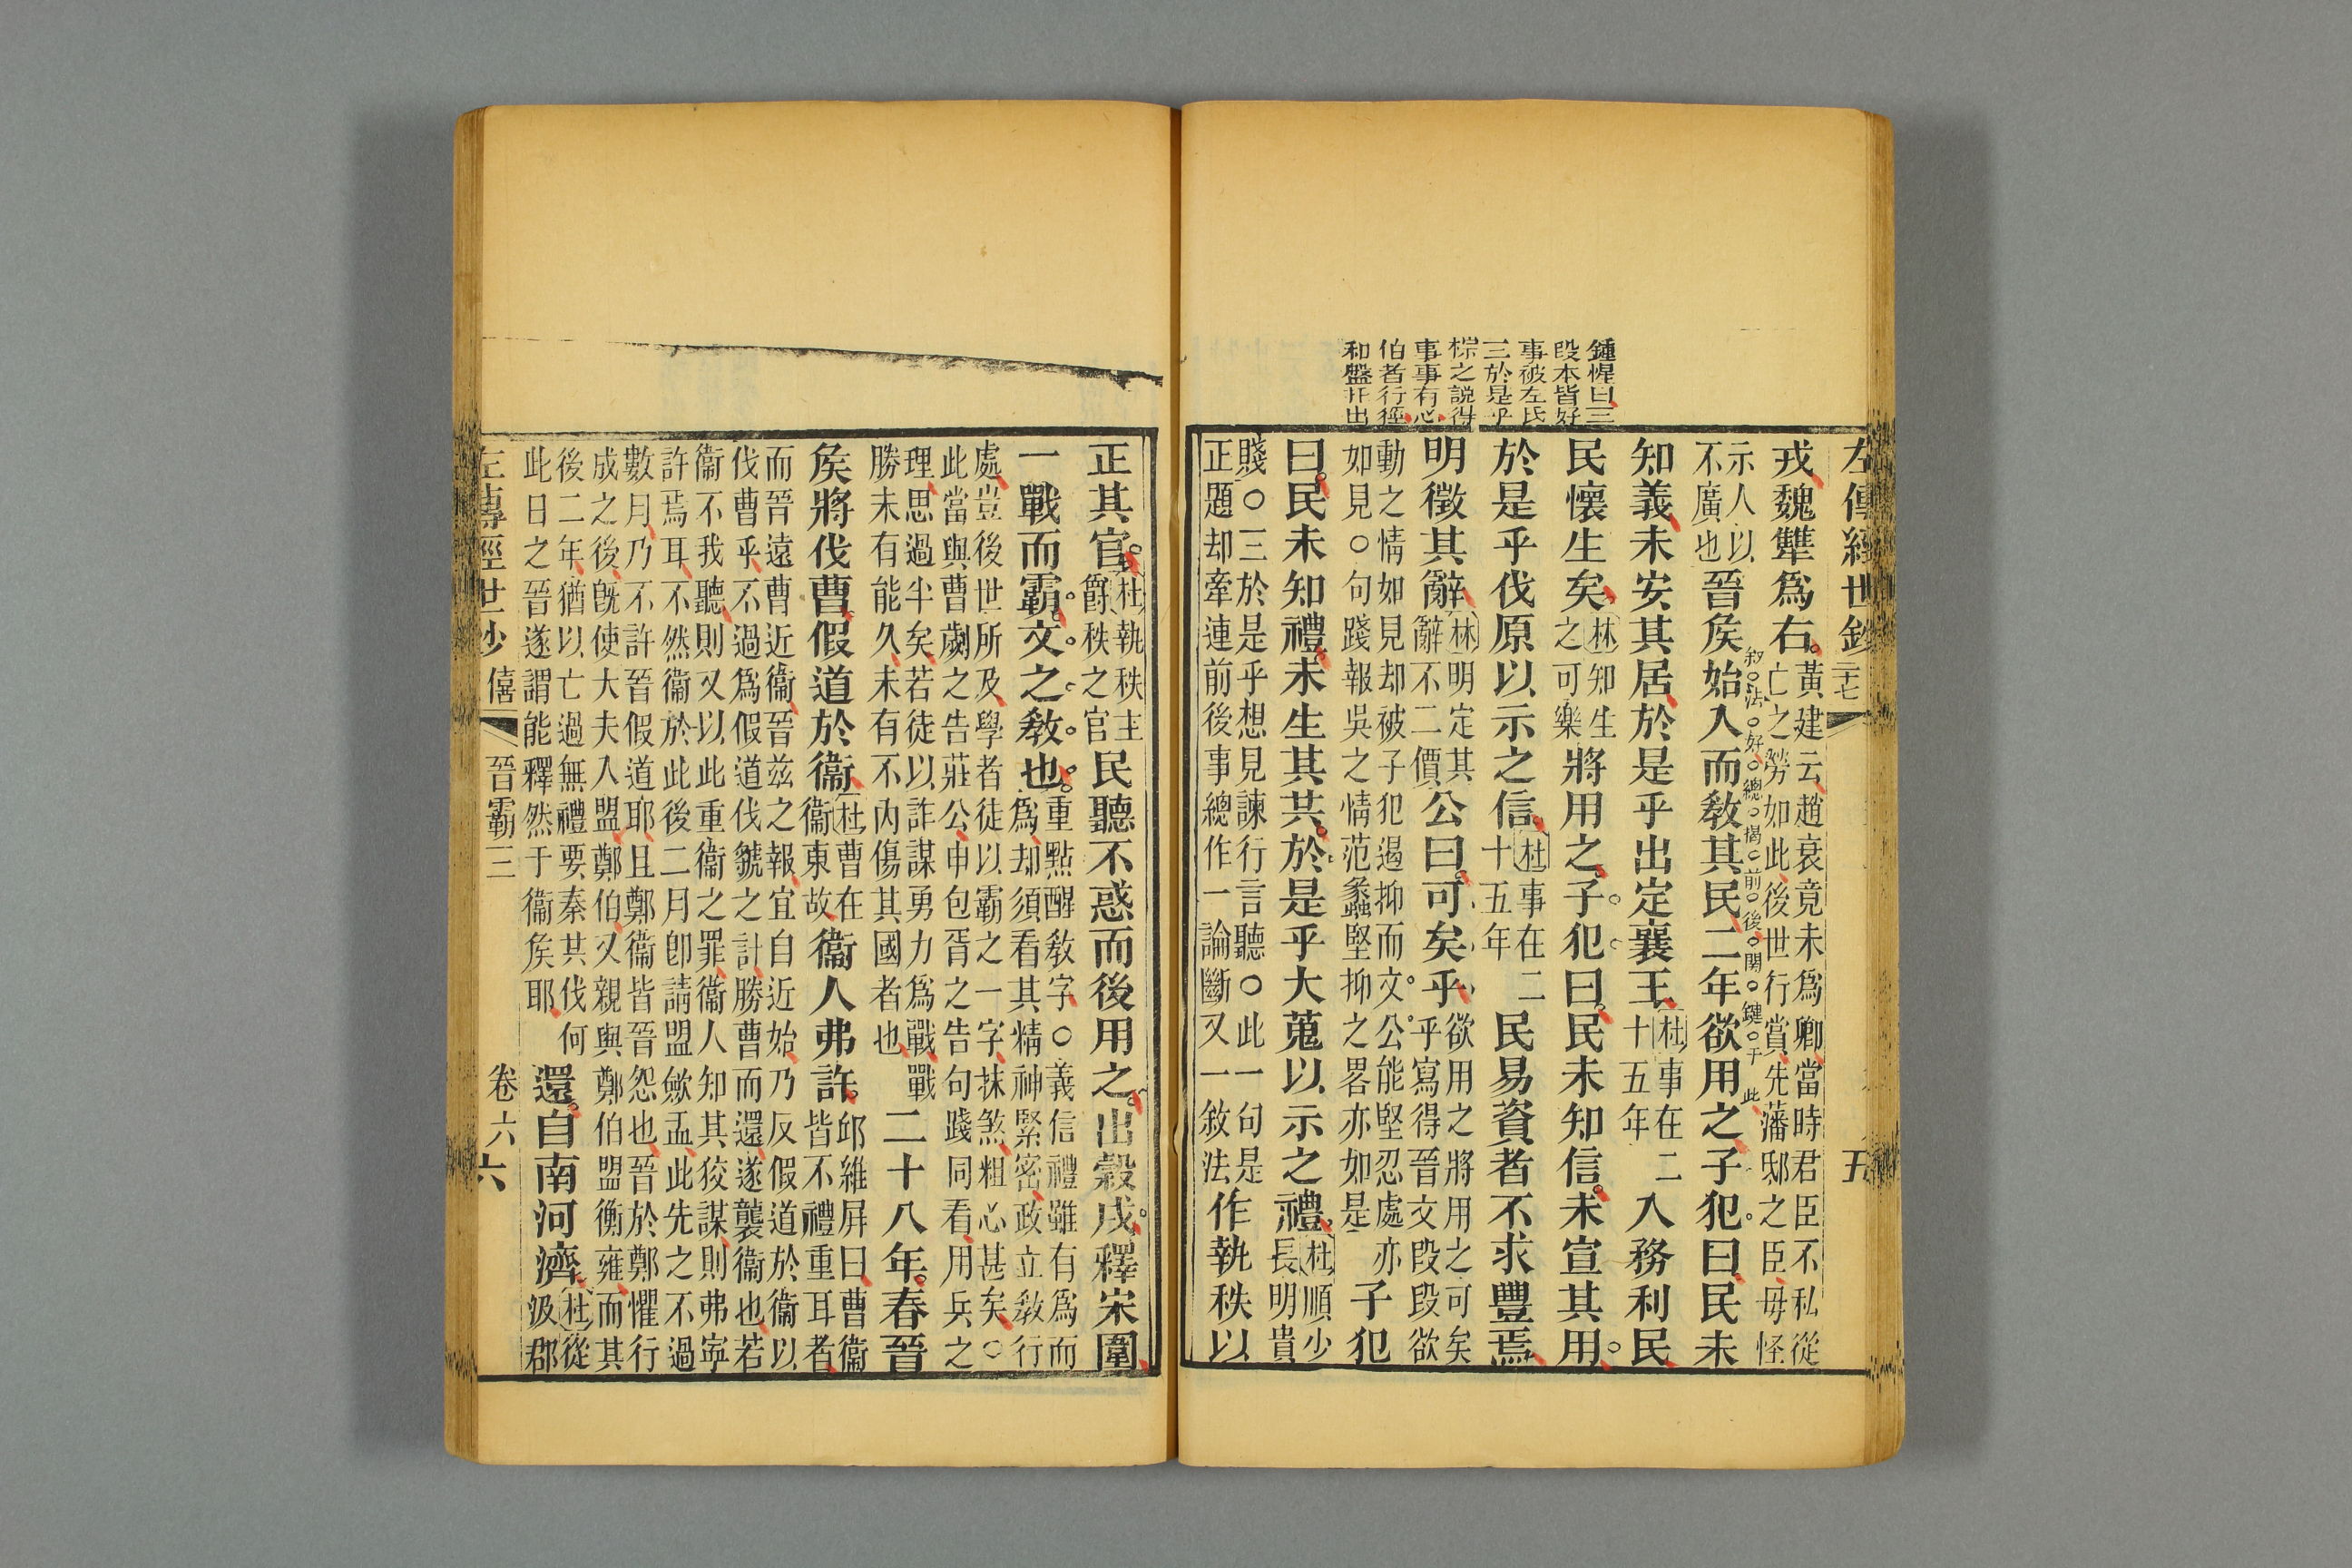 左傳經世鈔 二十七 五
鍾惺曰三
段本皆好
事被左氏
三於是乎
棕之說得
事事有心
伯者行徑
和盤托出
戎魏犨為右黃建云趙衰竟未為卿當時君臣不私從
亡之勞如此後世行賞先藩邸之臣毋怪
示人以
不廣也晉矦始入而教其民二年欲用之子犯曰民未
敘法好總揭前後關鍵于此
知義未安其居於是乎出定襄王杜事在二
十五年入務利民
民懷生矣林知生
之可樂將用之子犯曰民未知信未宣其用
於是乎伐原以示之信杜事在二
十五年民易資者不求豐焉
明徵其辭林明定其
辭不二價公曰可矣乎欲用之將用之可矣
乎寫得晉文段段欲
動之情如見却被子犯遏抑而文公能堅忍處亦
如見○句踐報吳之情范蠡堅抑之畧亦如是子犯
曰民未知禮未生其共於是乎大蒐以示之禮杜順少
長明貴
賤○三於是乎想見諫行言聽○此一句是
正題却牽連前後事總作一論斷又一敘法作執秩以
正其官杜執秩主
爵秩之官民聽不惑而後用之出穀戍釋宋圍
一戰而霸文之教也重點醒教字○義信禮雖有為而
為却須看其精神緊密政立教行
處豈後世所及學者徒以霸之一字抹煞粗心甚矣○
此當與曹劌之告莊公申包胥之告句踐同看用兵之
理思過半矣若徒以詐謀勇力為戰戰
勝未有能久未有不內傷其國者也二十八年春晉
矦將伐曹假道於衞杜曹在
衞東故衞人弗許邱維屏曰曹衞
皆不禮重耳者
而晉遠曹近衞晉茲之報宜自近始乃反假道於衞以
伐曹乎不過為假道伐虢之計勝曹而還遂襲衞也若
衞不我聽則又以此重衞之罪衞人知其狡謀則弗寧
許焉耳不然衞於此後二月卽請盟歛盂此先之不過
數月乃不許晉假道耶且鄭衞皆晉怨也晉於鄭懼行
成之後旣使大夫入盟鄭伯又親與鄭伯盟衡雍而其
後二年猶以亡過無禮要秦其伐何
此日之晉遂謂能釋然于衞矦耶還自南河濟杜從
汲郡
左傳經世鈔 僖 晉霸三 卷六 六